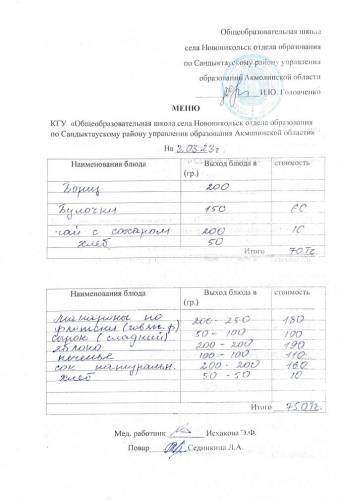 Общеобразовательная школа
села Новоникольск отдела образования
по Сандыктаускому району управления
образования Акмолинской области
И.Ю. Головченко
МЕНЮ
КГУ «Общеобразовательная школа села Новоникольск отдела образования
по Сандыктаускому району управления образования Акмолинской области»
На 3.03.23г.
Наименования блюда Выход блюда в (гр.) стоимость
Борщ 200
Булочки 150 60
чай с сахаром 200 10
хлеб 50
Итого 70тг.
Наименования блюда Выход блюда в (гр.) стоимость
Макароны по
флотски (говяж.ф) 200-250 180
сырок (сладкий) 50-100 100
яблоко 200-200 190
печенье 100-100 110
сок натуральн. 200-200 160
хлеб 50-50 10
Итого 750тг.
Мед. работник Исхакова Э.Ф.
Повар Сединкина Л.А.